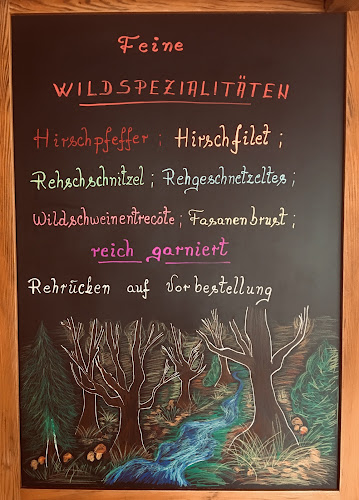 Feine
WILDSPEZIALITÄTEN
Hirschpfeffer; Hirschfilet;
Rehschschnitzel; Rehgeschnetzeltes;
Wildschweinentrecote; Fasanenbrust;
reich garniert
Rehrücken auf Vorbestellung